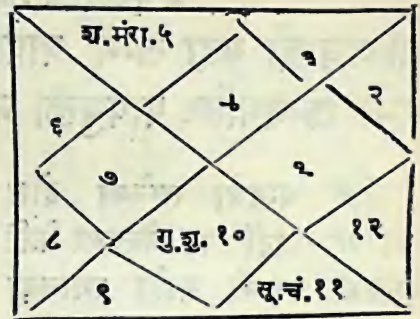 श.मंरा.५
३
४
२
६
७
१
८
गु.शु.१०
१२
९
सू.चं.११